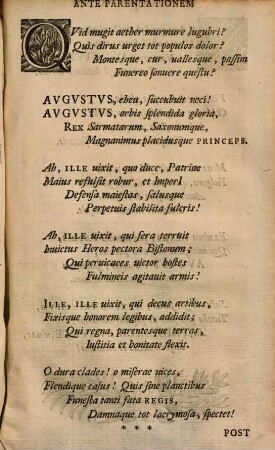 ANTE PARENTATIONEM
QVid mugit aether murmure lugubri?
Quis dirus urget tot populos dolor?
Montesque, cur, uallesque, passim
Funereo sonuere questu?
AVGVSTVS, eheu, succubuit neci!
AVGVSTVS, orbis splendida gloria,
REX Sarmatarum, Saxonumque,
Magnanimus placidusque PRINCEPS.
Ah, ILLE uixit, quo duce, Patriae
Maius refulsit robur, et Imperî
Defensa maiestas, salusque
Perpetuis stabilita fulcris!
Ah, ILLE uixit, qui fera terruit
Inuictus Heros pectora Bistonum;
Qui peruicaces uictor hostes
Fulmineis agitauit armis!
ILLE, ILLE uixit, qui decus artibus,
Fixisque honorem legibus, addidit;
Qui regna, parentesque terras,
Iustitia et bonitate flexit.
O dura clades! o miserae uices,
Flendique casus! Quis sine planctibus
Funesta tanti fata REGIS,
Damnaque tot lacrymosa, spectet!
* * *
POST